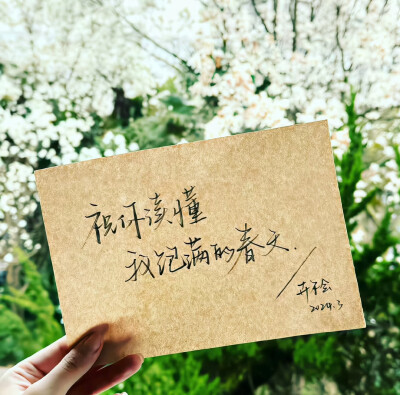 祝你读懂
我饱满的春天.
2024.3